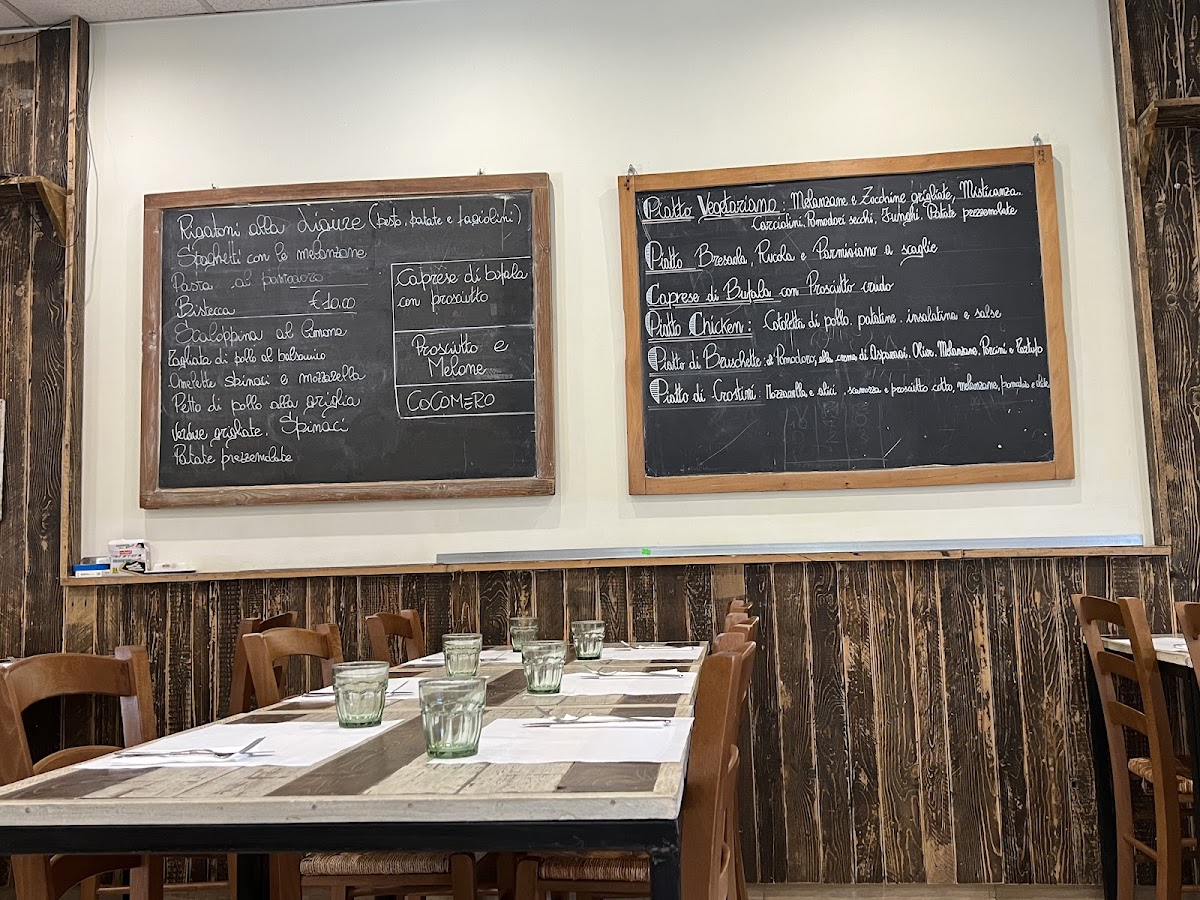 Rigatoni alla Ligure (pesto, patate e fagiolini)
Spaghetti con le melanzane
Pasta al pomodoro
Bistecca €10,00
Scaloppina al limone
Tagliata di pollo al balsamico
Omelette spinaci e mozzarella
Petto di pollo alla griglia
Verdure grigliate, Spinaci
Patate prezzemolate
Caprese di bufala
con prosciutto
Prosciutto e
Melone
COCOMERO
Piatto Vegetariano: Melanzane e Zucchine grigliate, Misticanza,
Carciofini, Pomodori secchi, Funghi, Patate prezzemolate
Piatto Bresaola, Rucola e Parmigiano a scaglie
Caprese di Bufala con Prosciutto crudo
Piatto Chicken: Cotoletta di pollo, patatine, insalatina e salse
Piatto di Bruschette: al Pomodoro, alla crema di Asparagi, Olive, Melanzane, Porcini e Tartufo
Piatto di Crostini: Mozzarella e alici, scamorza e prosciutto cotto, melanzane, pomodoro e